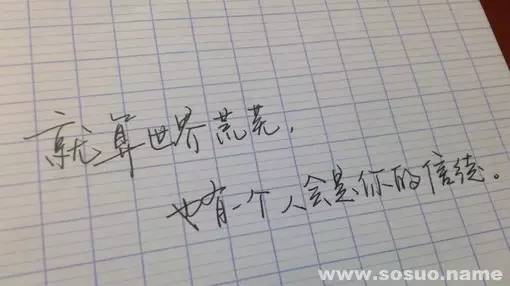 就算世界荒芜，
也有一个人会是你的信徒。
www.sosuo.name